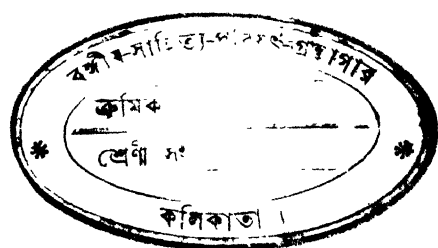 বঙ্গীয়-সাহিত্য-পরিষৎ-গ্রন্থাগার
ক্রমিক
শ্রেণী সং
কলিকাতা ।